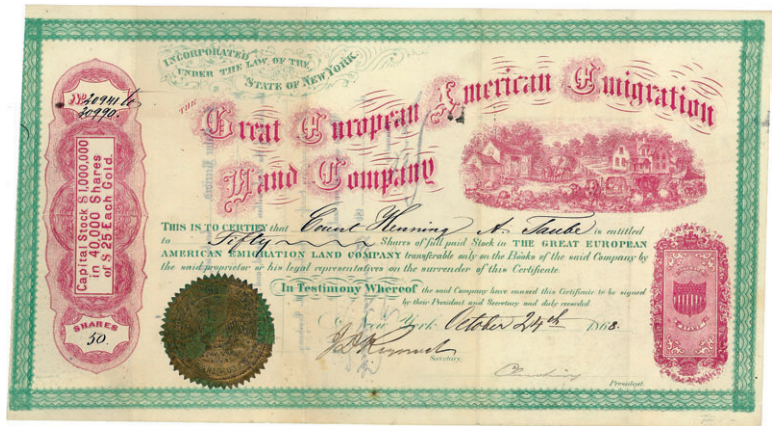 INCORPORATED
UNDER THE LAW OF THE
STATE OF NEW YORK.
THE
Great European American Emigration
Land Company
20941 to
20990.
Capital Stock $1,000,000
in 40,000 Shares
of $25 Each Gold.
SHARES
50.
THIS IS TO CERTIFY that Count Henning A. Taube is entitled
to Fifty Shares of full paid Stock in THE GREAT EUROPEAN
AMERICAN EMIGRATION LAND COMPANY transferable only on the Books of the said Company by
the said proprietor or his legal representatives on the surrender of this Certificate.
In Testimony Whereof the said Company have caused this Certificate to be signed
by their President and Secretary and duly recorded.
New York October 24th 1868.
Secretary.
President.